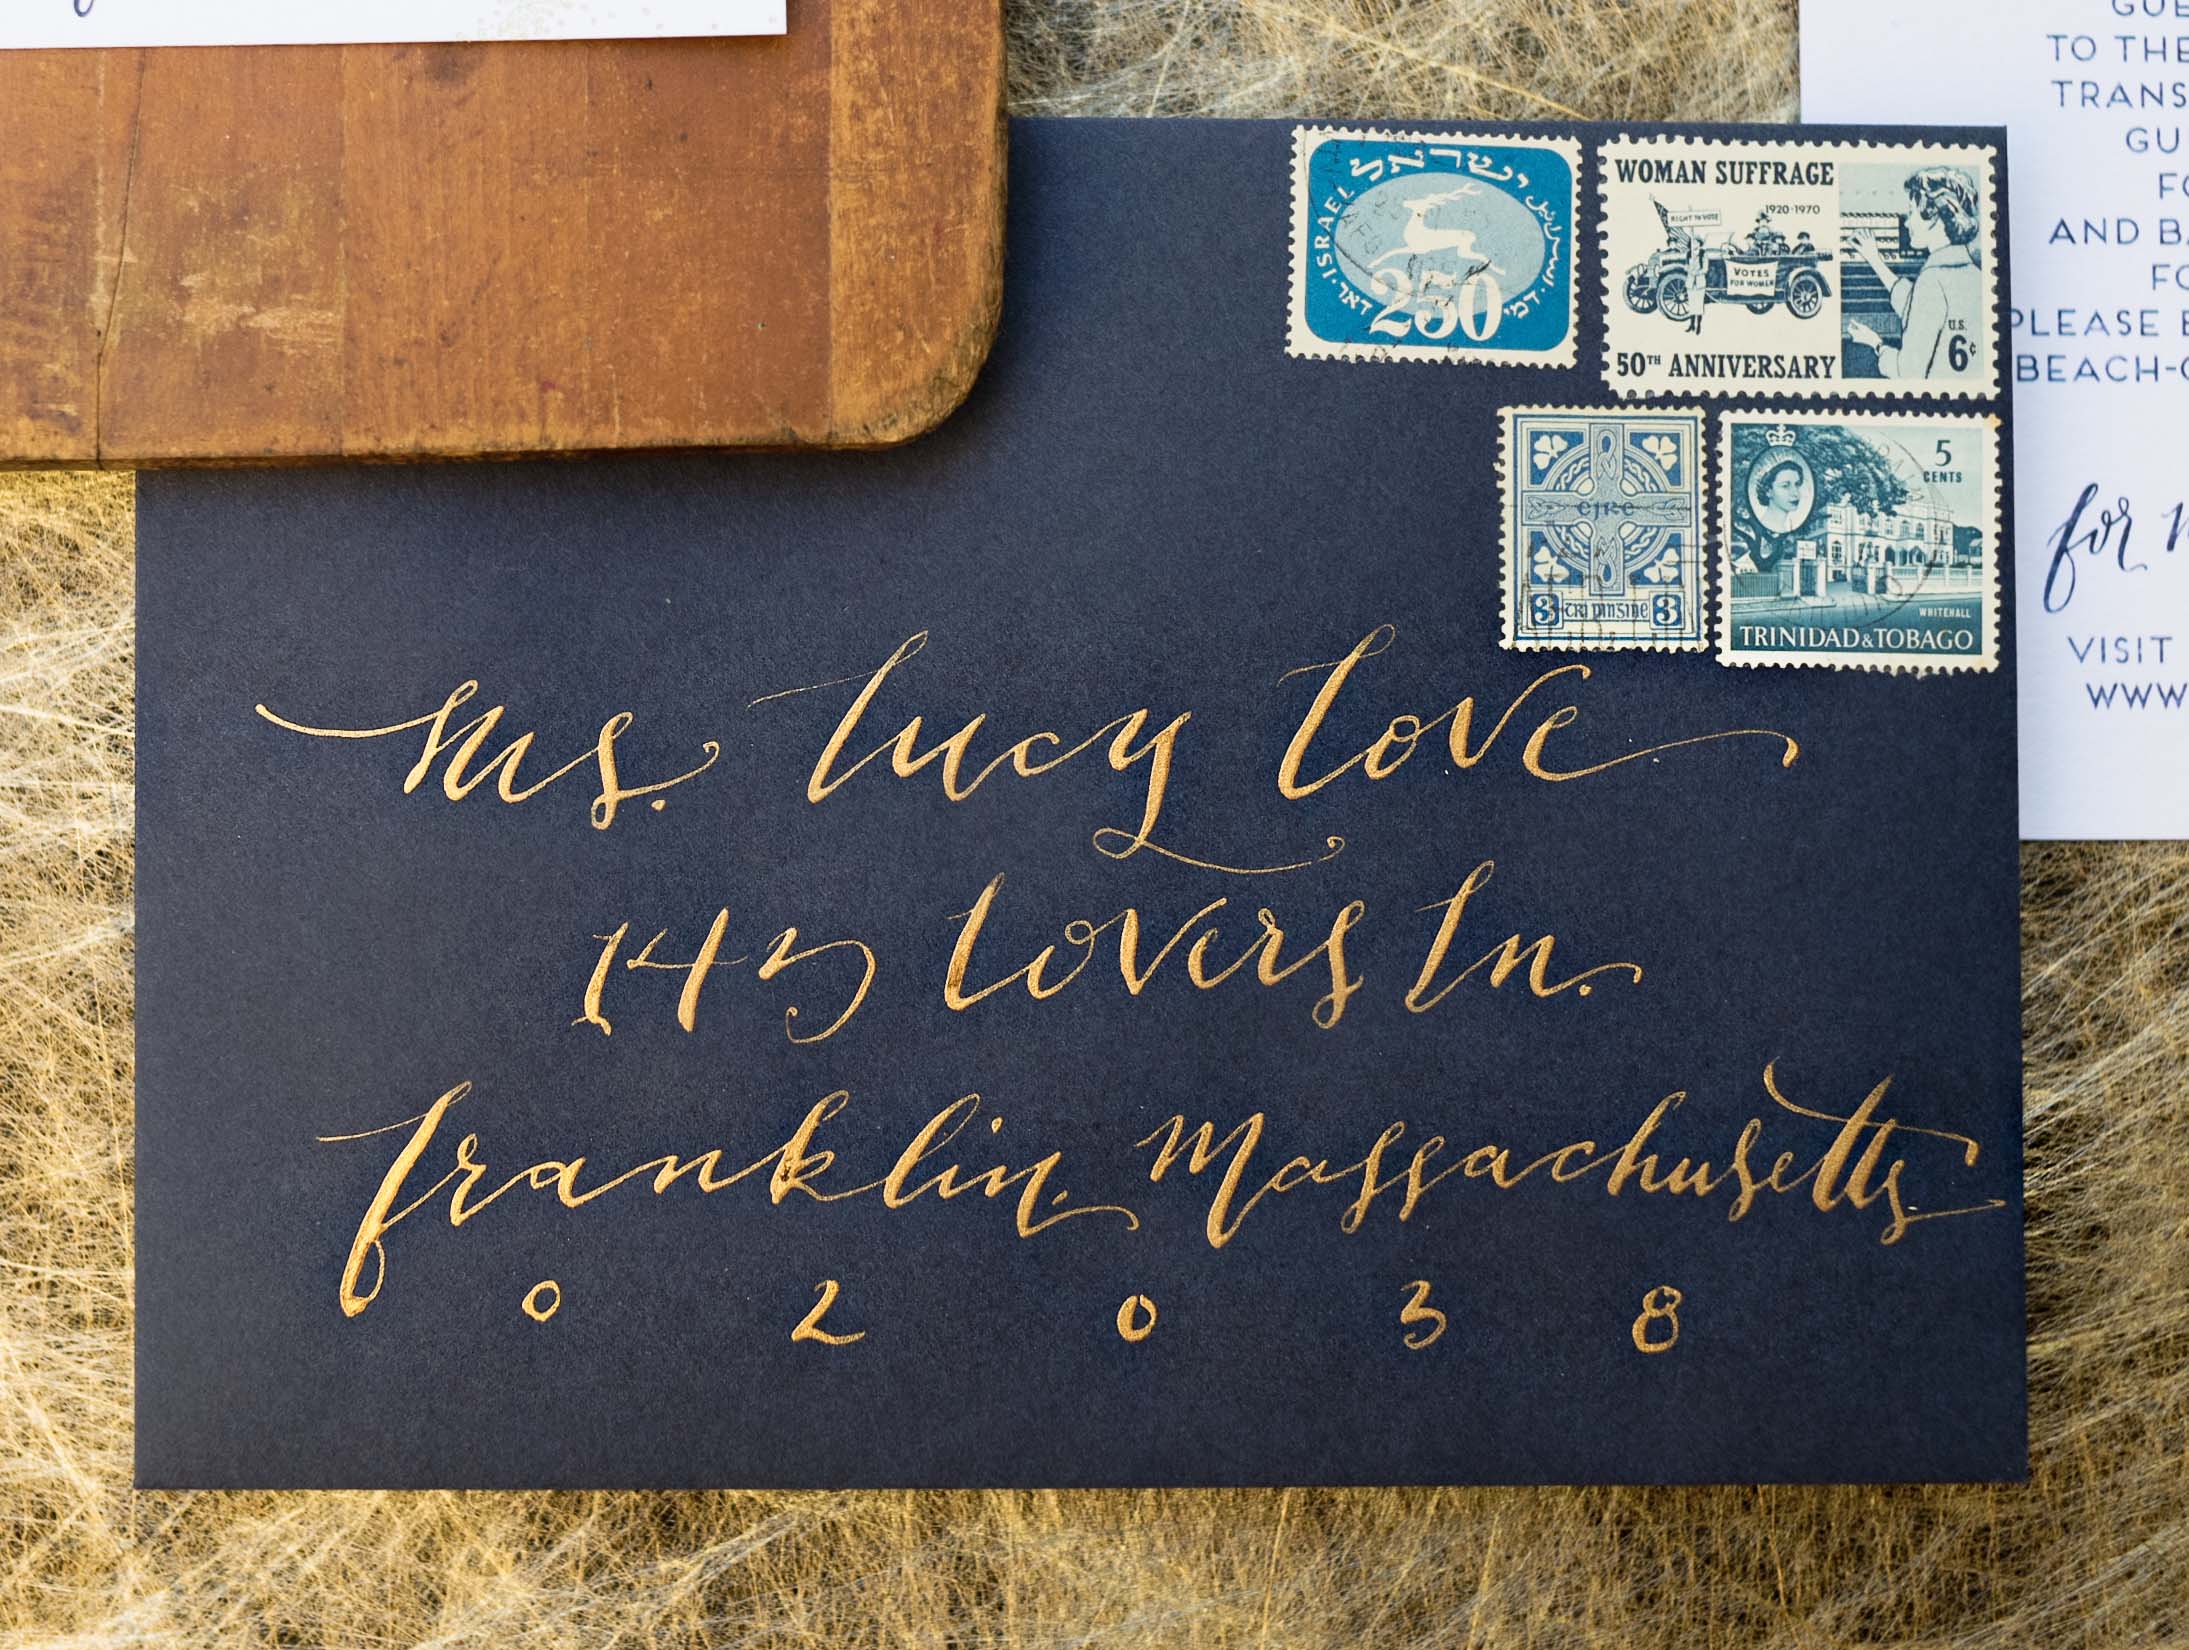 ישראל
ISRAEL
اسرائيل
דאר
דמי
250
WOMAN SUFFRAGE
1920-1970
RIGHT TO VOTE
VOTES
FOR WOMEN
U.S.
6¢
50TH ANNIVERSARY
EIRE
3 TRI PINSINE 3
5
CENTS
WHITEHALL
TRINIDAD & TOBAGO
Ms. Lucy Love
143 Lovers Ln.
Franklin, Massachusetts
0 2 0 3 8
TO THE
AND
PLEASE
for
VISIT
WWW